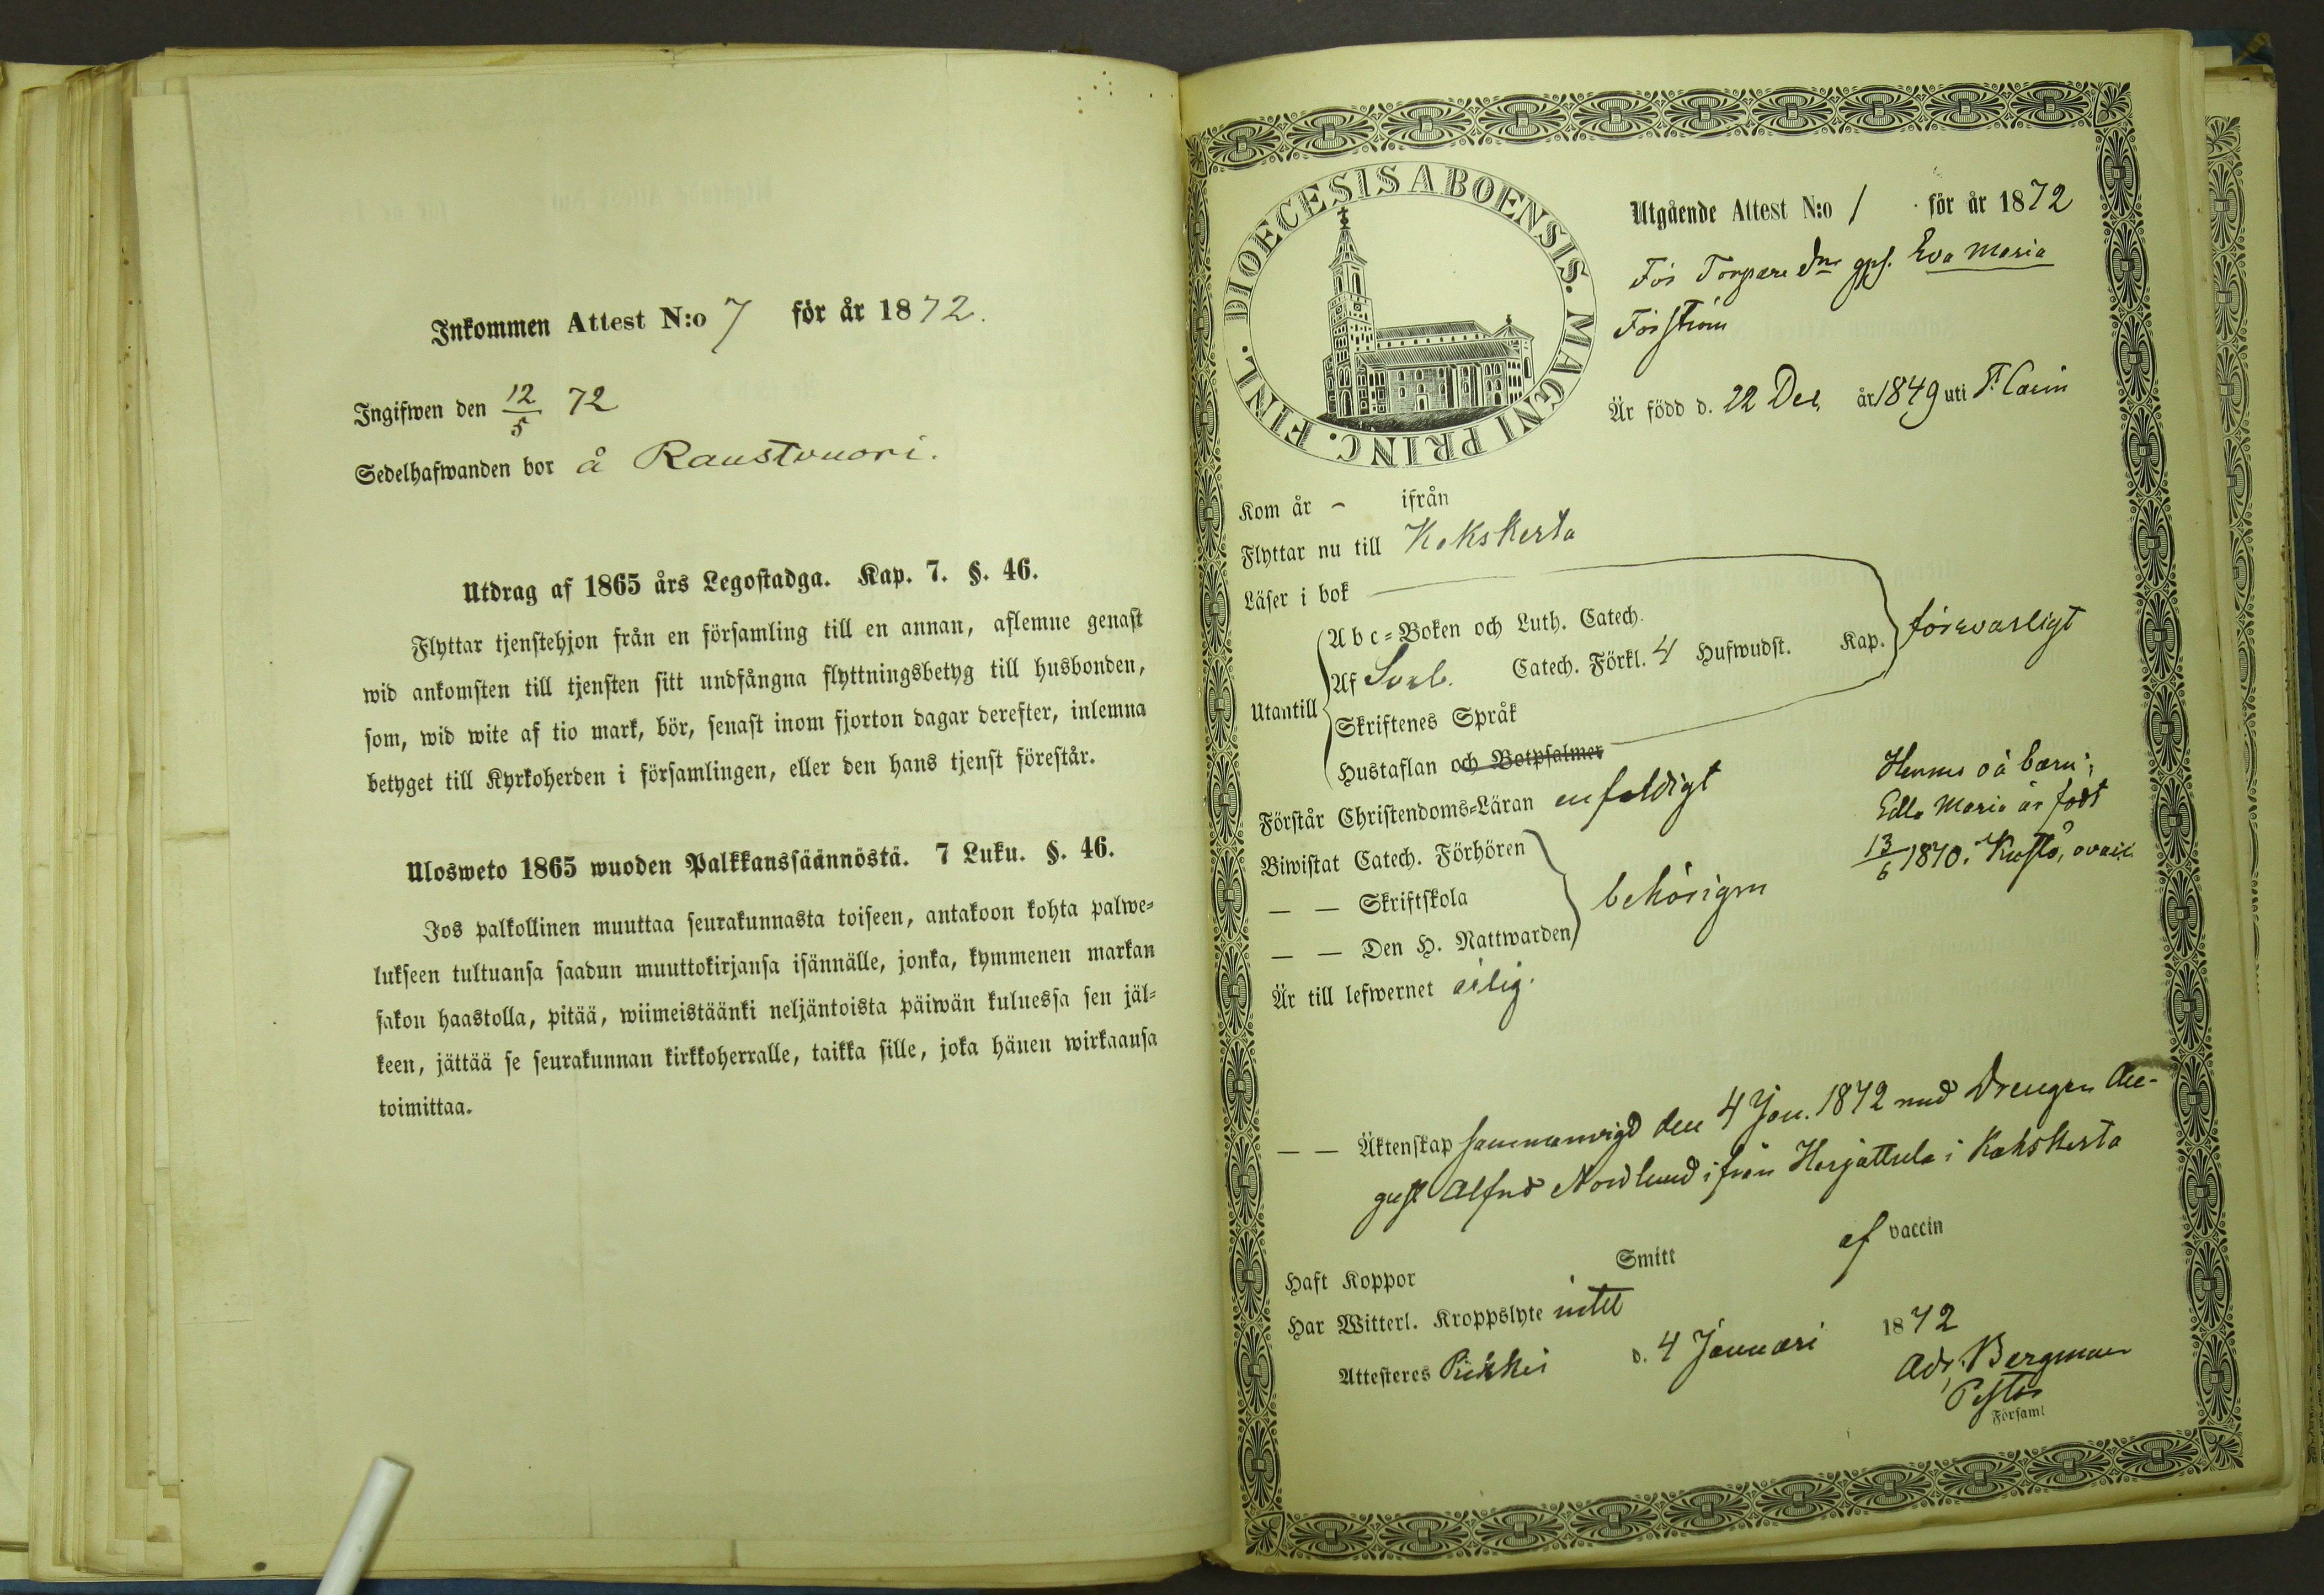 Inkommen Attest N:o 7 för år 1872.
Ingifwen den 12/5 72
Sedelhafwanden bor å Raustvuori.
Utdrag af 1865 års Legostadga. Kap. 7. §. 46.
Flyttar tjenstehjon från en församling till en annan, aflemne genast
wid ankomsten till tjensten sitt undfångna flyttningsbetyg till husbonden,
som, wid wite af tio mark, bör, senast inom fjorton dagar derefter, inlemna
betyget till Kyrkoherden i församlingen, eller den hans tjenst förestår.
Ulosweto 1865 wuoden Palkkanssäännöstä. 7 Luku. §. 46.
Jos palkollinen muuttaa seurakunnasta toiseen, antakoon kohta palwe=
lukseen tultuansa saadun muuttokirjansa isännälle, jonka, kymmenen markan
sakon haastolla, pitää, wiimeistäänki neljäntoista päiwän kuluessa sen jäl=
keen, jättää se seurakunnan kirkkoherralle, taikka sille, joka hänen wirkaansa
toimittaa.
DIOECESIS ABOENSIS. MAGNI PRINC. FINL.
Utgående Attest N:o 1 för år 1872
För Torpare Eva Maria
Forström
Är född d. 22 Dec. år 1849 uti
Kom år – ifrån
Flyttar nu till Kakskerta
Läser i bok
Utantill
Abc=Boken och Luth. Catech.
Af Sveb. Catech. Förkl. 4 Hufwudst. Kap. försvarligt
Skriftenes Språk
Hustaflan och Botpsalmer
Förstår Christendoms=Läran enfaldigt
Hennes oä barn;
Edla Maria är född
13/6 1870. i Kustö, ovacc.
Biwistat Catech. Förhören
— — Skriftskola
— — Den H. Nattwarden
behörigen
Är till lefwernet ärlig.
— — Äktenskap sammanvigd den 4 Jan. 1872 med Drengen Au-
gust Alfred Nordlund ifrån Harjattula i Kakskerta
Haft Koppor Smitt af vaccin
Har Witterl. Kroppslyte intet
Attesteres Piikkis d. 4 Januari 1872
Adr. Bergman
Pastor
Församl